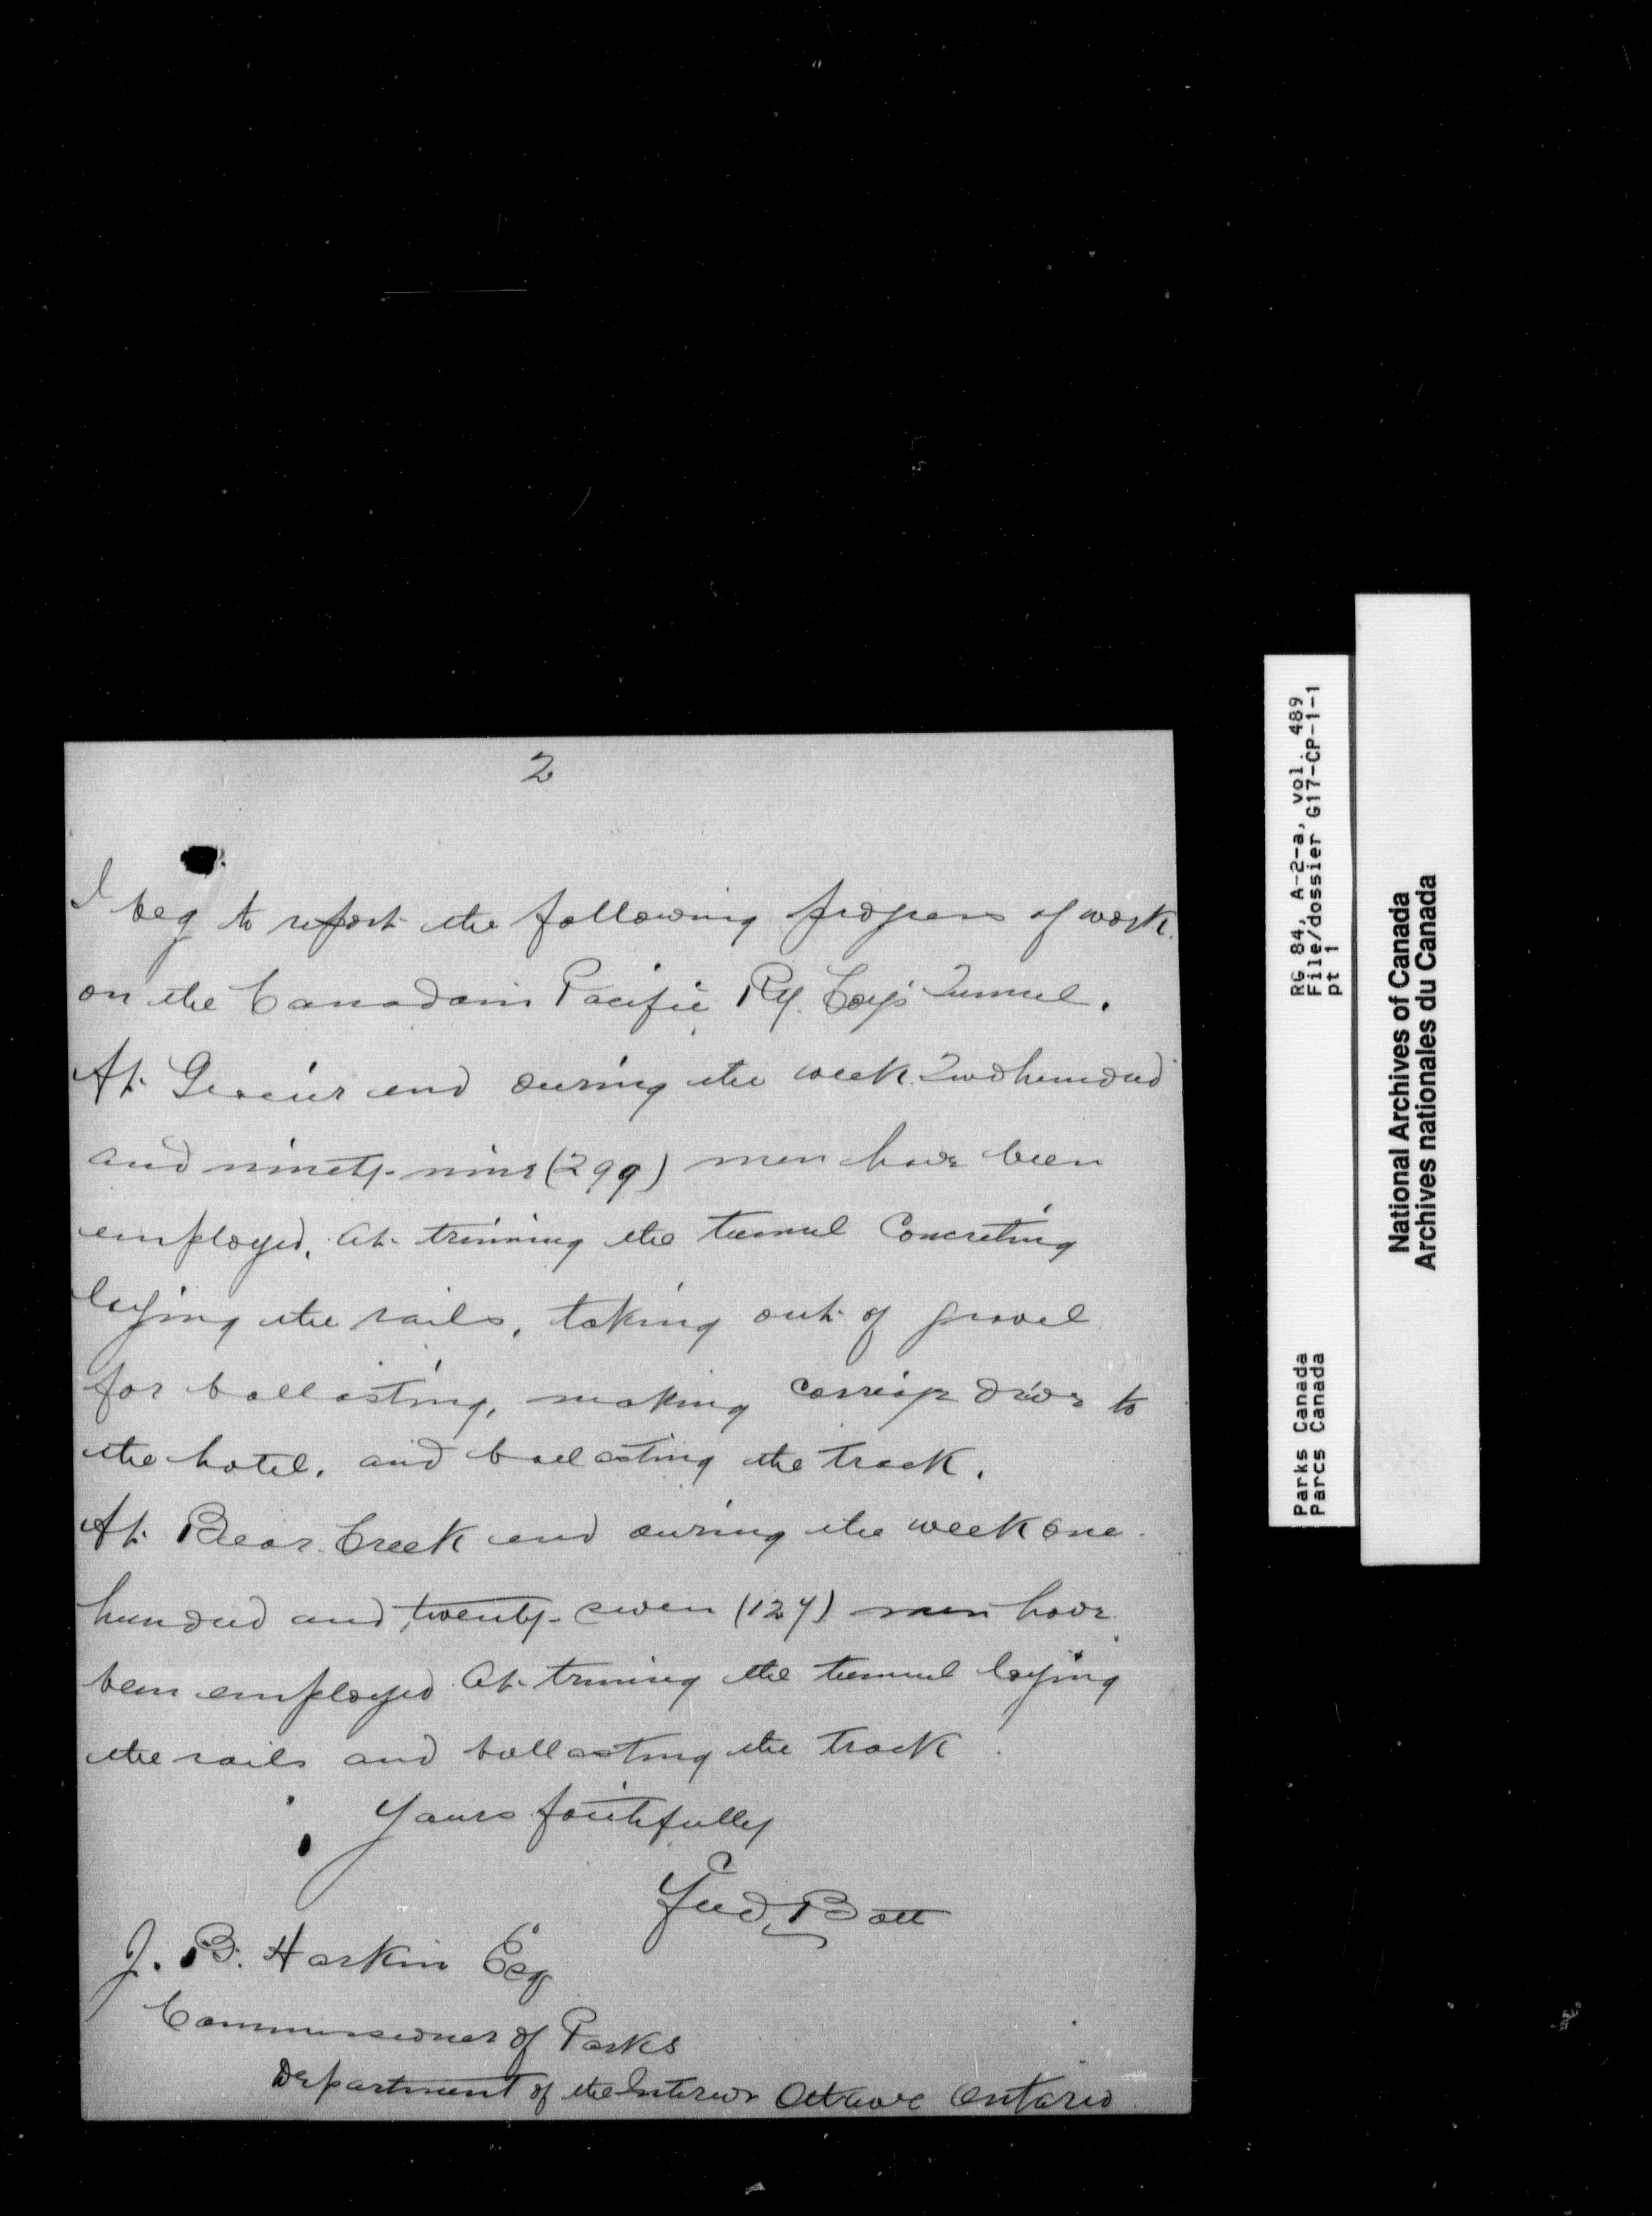 2
I beg to report the following progress of work
on the Canadain Pacific Ry. Coy's Tunnel.
At Glacier end during the week Two hundred
and ninety-nine (299) men have been
employed, at trimming the tunnel Concreting
laying the rails, taking out of gravel
for ballasting, making carriage drive to
the hotel, and ballasting the track.
At Bear Creek end during the week one
hundred and twenty-seven (127) men have
been employed at triming the tunnel laying
the rails and ballasting the track
Yours faithfully
Fred Batt
J. B. Harkin Esq
Commissioner of Parks
Department of the Interior Ottawa Ontario
RG 84, A-2-a, vol. 489
File/dossier G17-CP-1-1
pt 1
Parks Canada
Parcs Canada
National Archives of Canada
Archives nationales du Canada